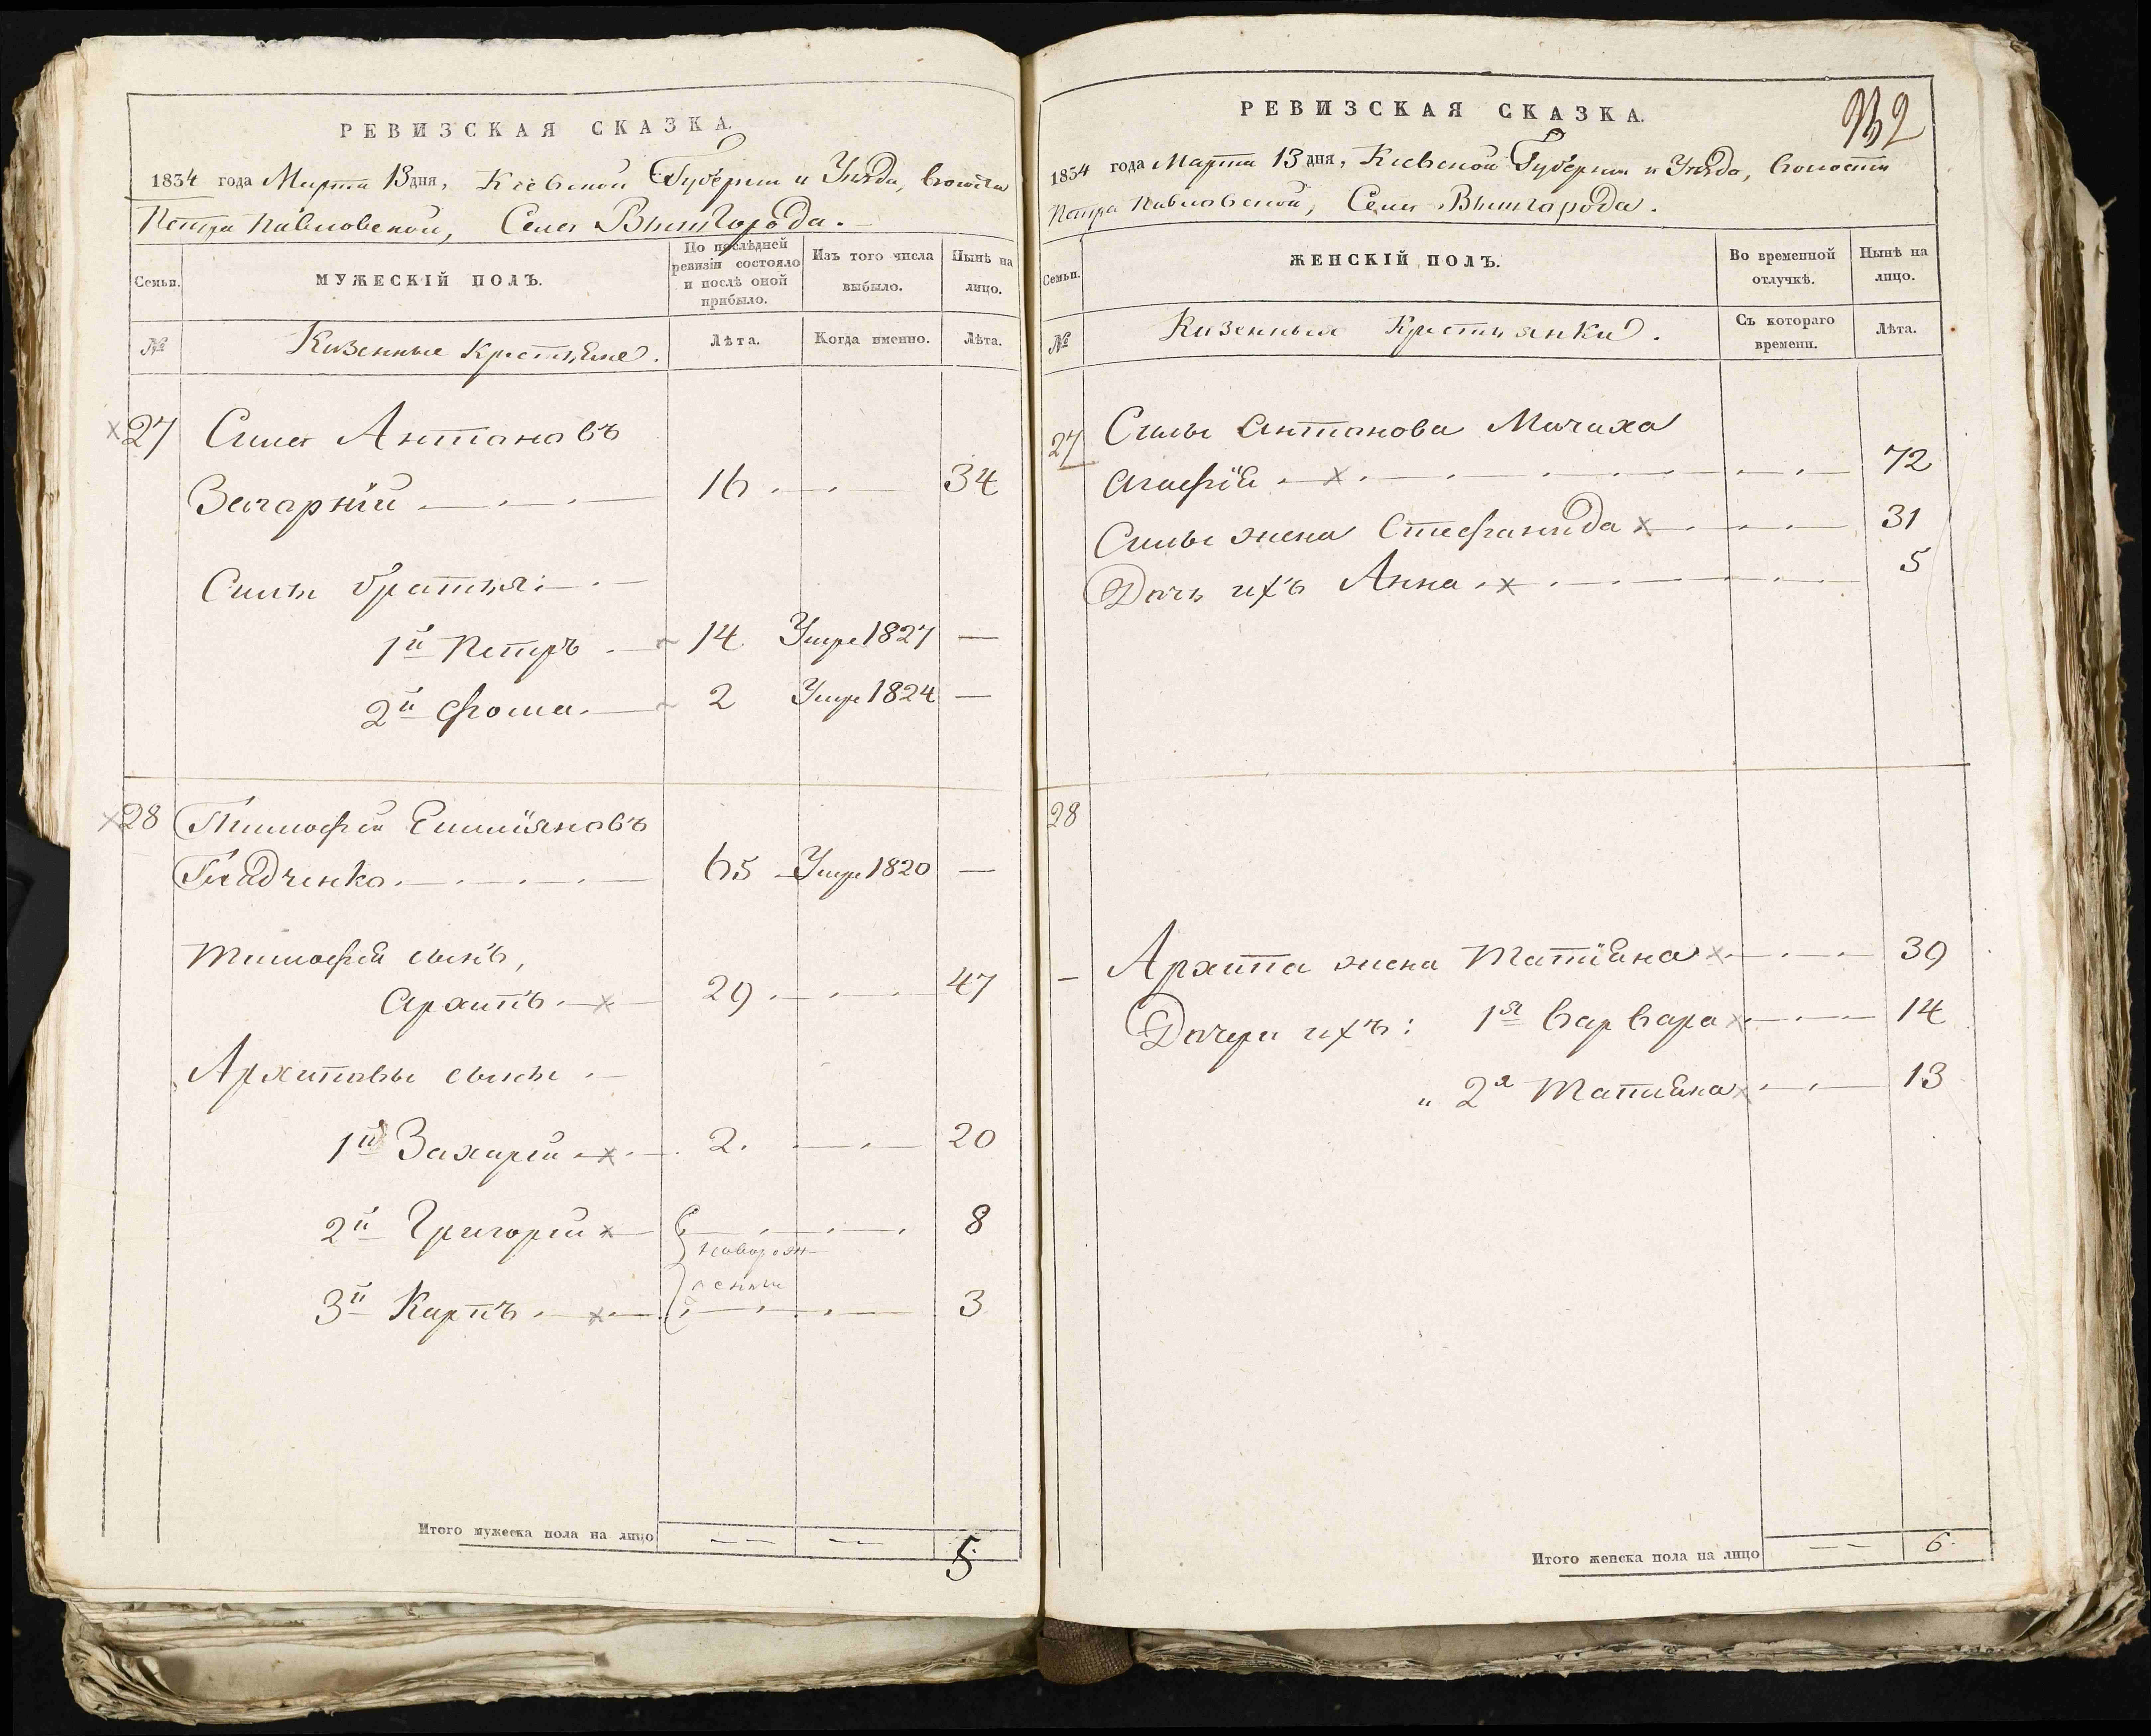 РЕВИЗСКАЯ СКАЗКА.
1834 года Марта 13 дня, Кіевской Губерніи и Уѣзда, волости
Петра Павловской, Села Вышгорода.
Семьи.
МУЖЕСКІЙ ПОЛЪ.
По послѣдней ревизіи состояло и послѣ оной прибыло.
Изъ того числа выбыло.
Нынѣ на лицо.
№
Казенные Крестьяне.
Лѣта.
Когда именно.
Лѣта.
27 Сила Антоновъ
16 34
Силы братья:
1й Петръ 14 Умре 1827
2й Фома 2 Умре 1824
28 Тимофей Емиліяновъ
65 Умре 1820
Тимофея сынъ,
Архипъ 29 47
Архиповы сыны
1й Захарій 2. 20
2й Григорій 8
новорож
денные
3й Карпъ 3
Итого мужеска пола на лицо 5.
РЕВИЗСКАЯ СКАЗКА.
1834 года Марта 13 дня, Кіевской Губерніи и Уѣзда, волости
Петра Павловской, Села Вышгорода.
Семьи.
ЖЕНСКІЙ ПОЛЪ.
Во временной отлучкѣ.
Нынѣ на лицо.
№
Казенныя Крестьянки.
Съ котораго времени.
Лѣта.
27 Силы Антонова Мачиха
Агафія 72
Силы жена Стефанида 31
Дочь ихъ Анна 5
28
Архипа жена Татіана 39
Дочери ихъ: 1я Варвара 14
" 2я Татіана 13
Итого женска пола на лицо 6.